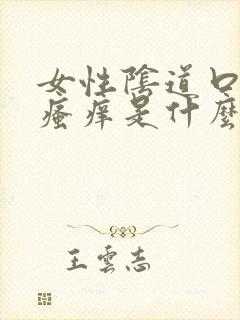 女性陰道口
瘙痒是什麼
王雲志